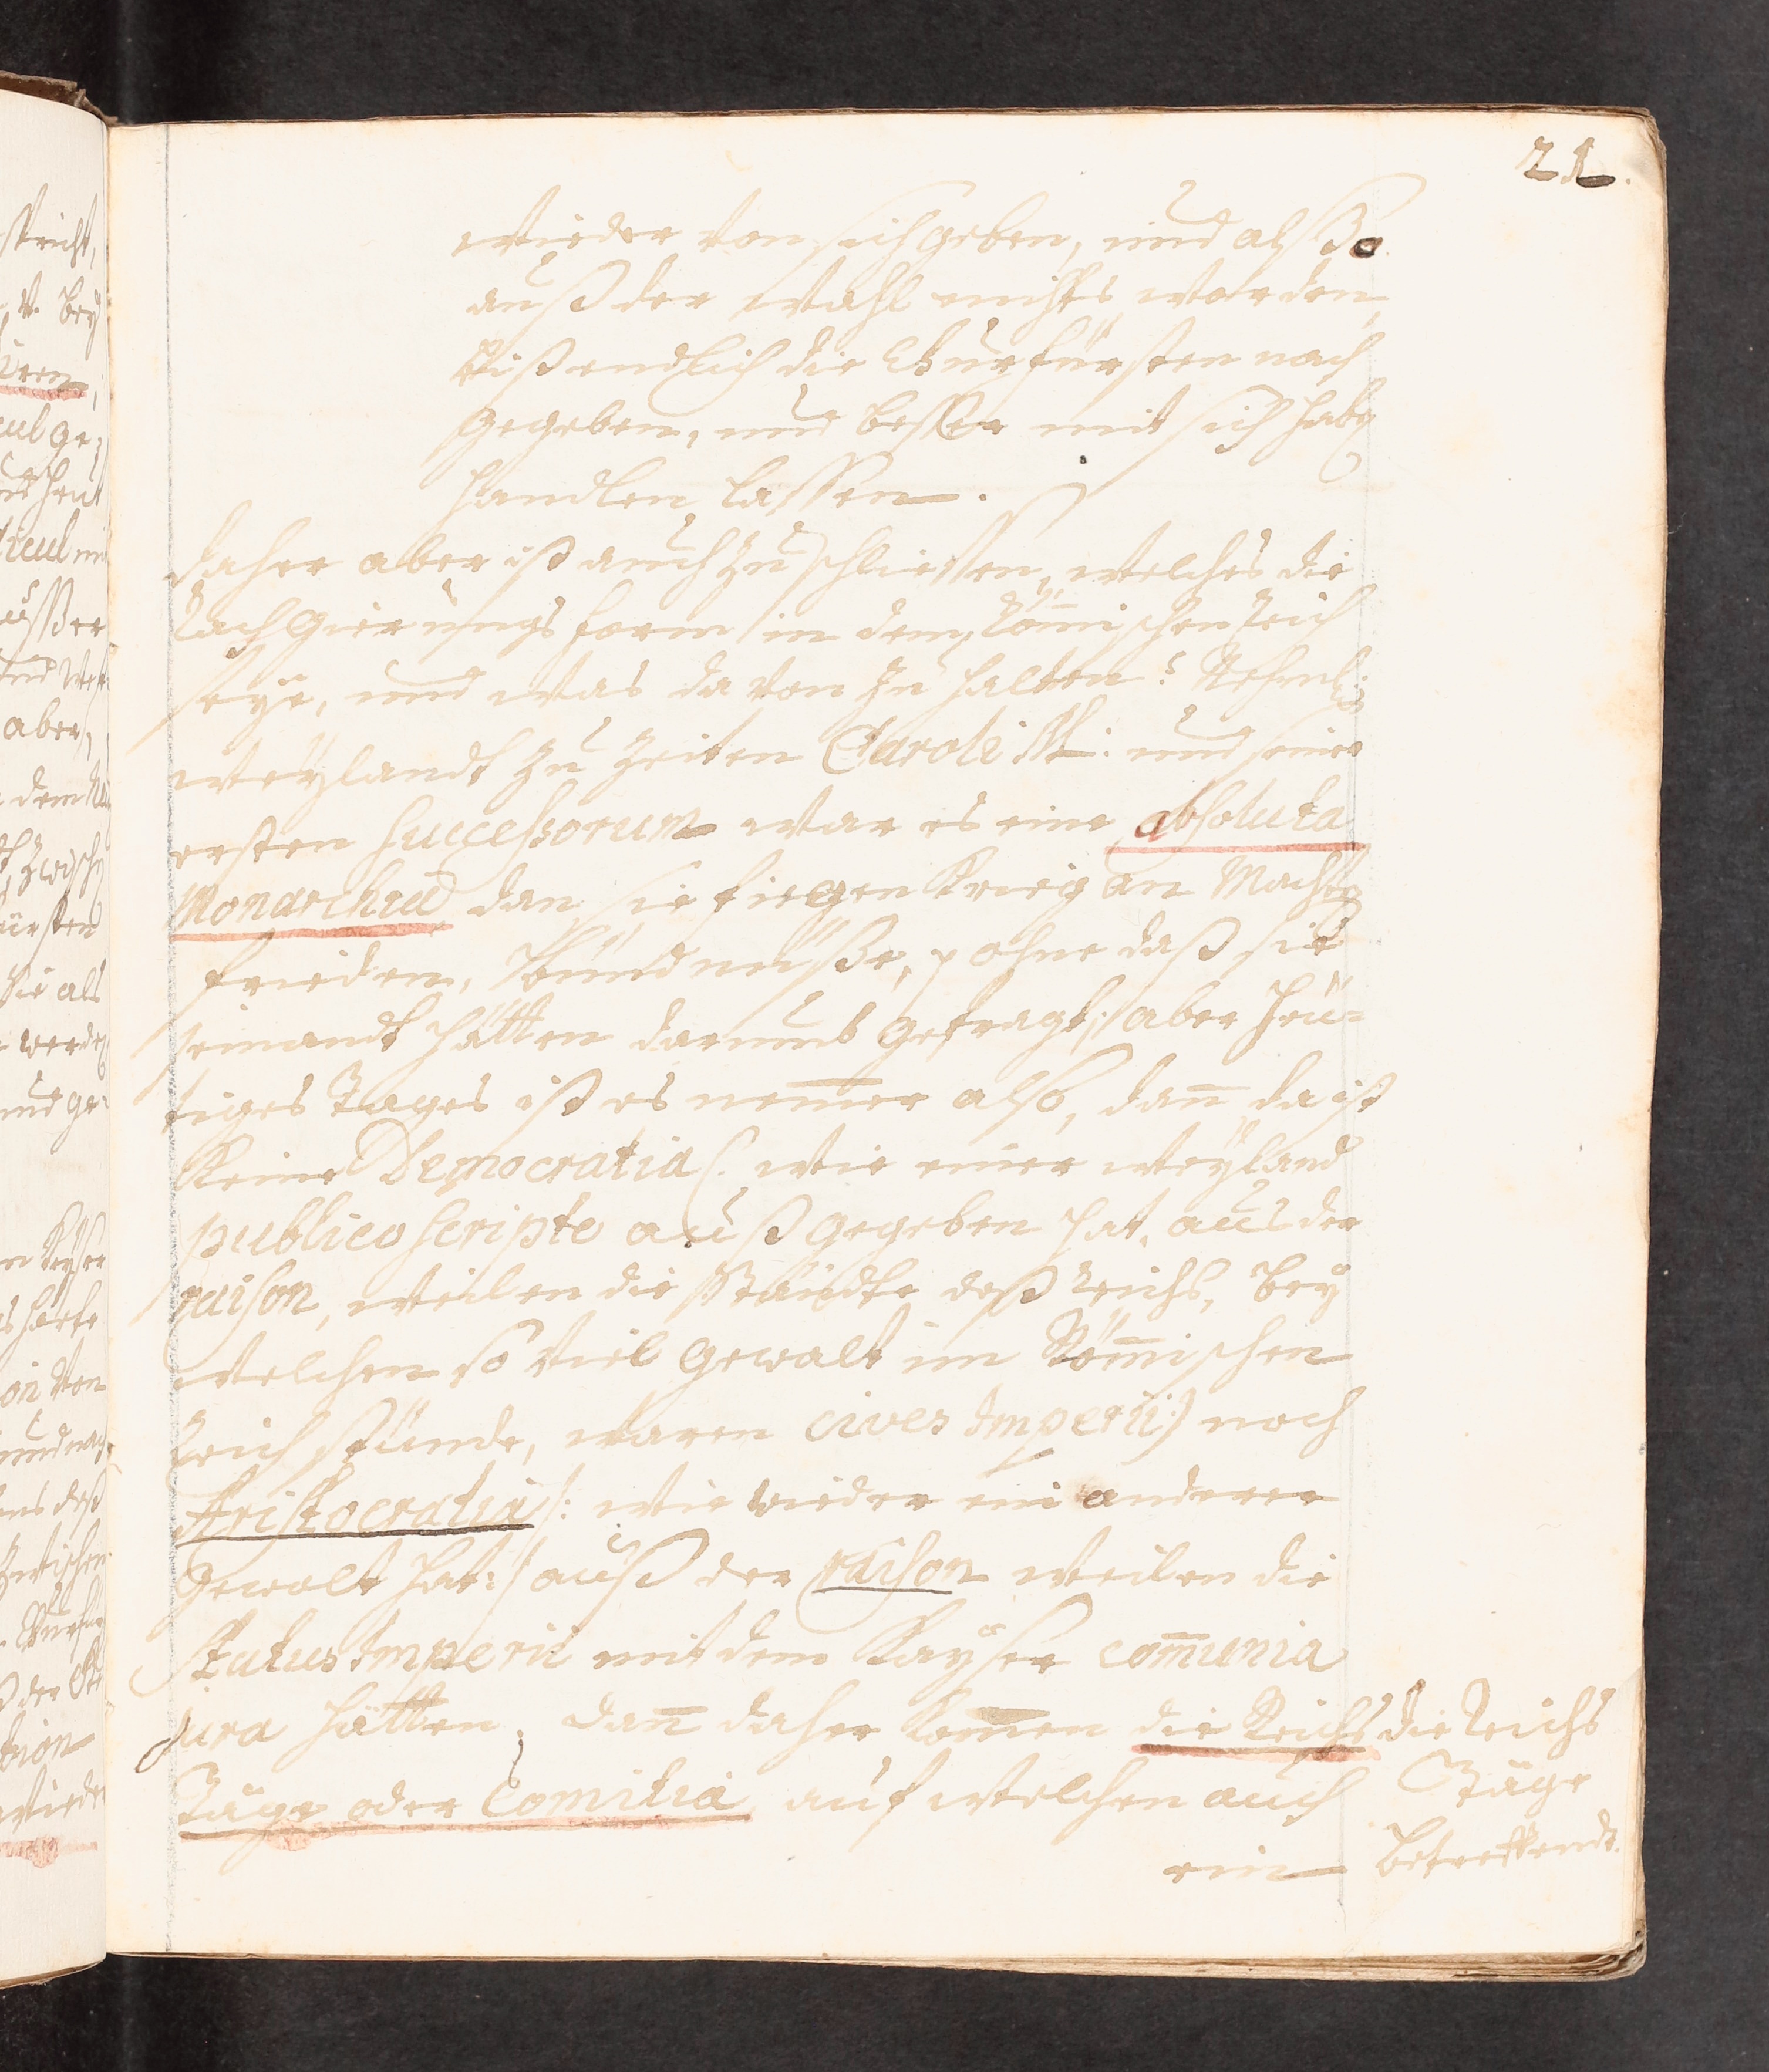 21.
wieder von sich geben, und alßo
auß der Wahl nichts worden,
biß endlich die Churfürsten nach
gegeben, und besser mit sich habe
handlen lassen.
Daher aber ist auch zu schliessen, welches die
form in dem Römischen Reich
seye, und was da von zu halten? Nehml:
weylandt zu Zeiten Caroli M: und seiner
ersten Successorum war es eine absoluta
Monarchia dan sie fiengen Krieg an Machte
frieden, Bündnuße, ohne daß sie
iemandt hätten darumb gefragt; aber heü-
tiges Tages ist es nem̄er also, dan̄ da ist
Keine Democratia (: wie einer weyland
publico scripto auß gegeben hat, aus der
raison, weilen die Ständte deß Reichs, bey
welchen so viel gewalt im Röm̄ischen
Reich stünde, waren cives Imperii:) noch
Aristocratia /: wie wieder ein anderer
gewolt hat :/ auß der raison weilen die
Status Imperii mit dem Kayser com̄unia
jura hätten, dan̄ daher kom̄en die Reichs
Täge oder Comitia auf welchen auch
ein
die Reichs
Täge
betreffendt.